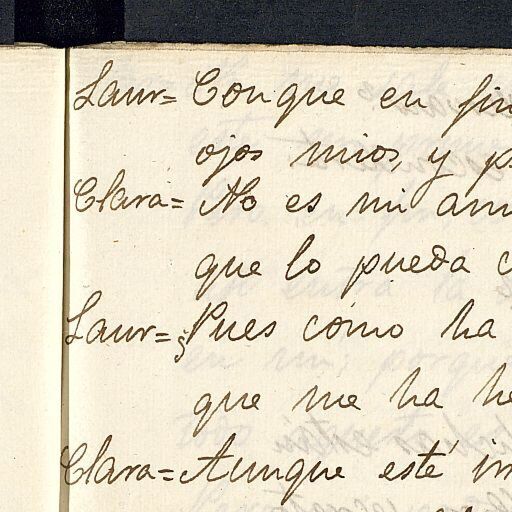 Laur= Conque en fin
ojos mios, y
Clara= No es mi
que lo pueda
Laur= ¿Pues cómo ha
que me ha
Clara= Aunque esté